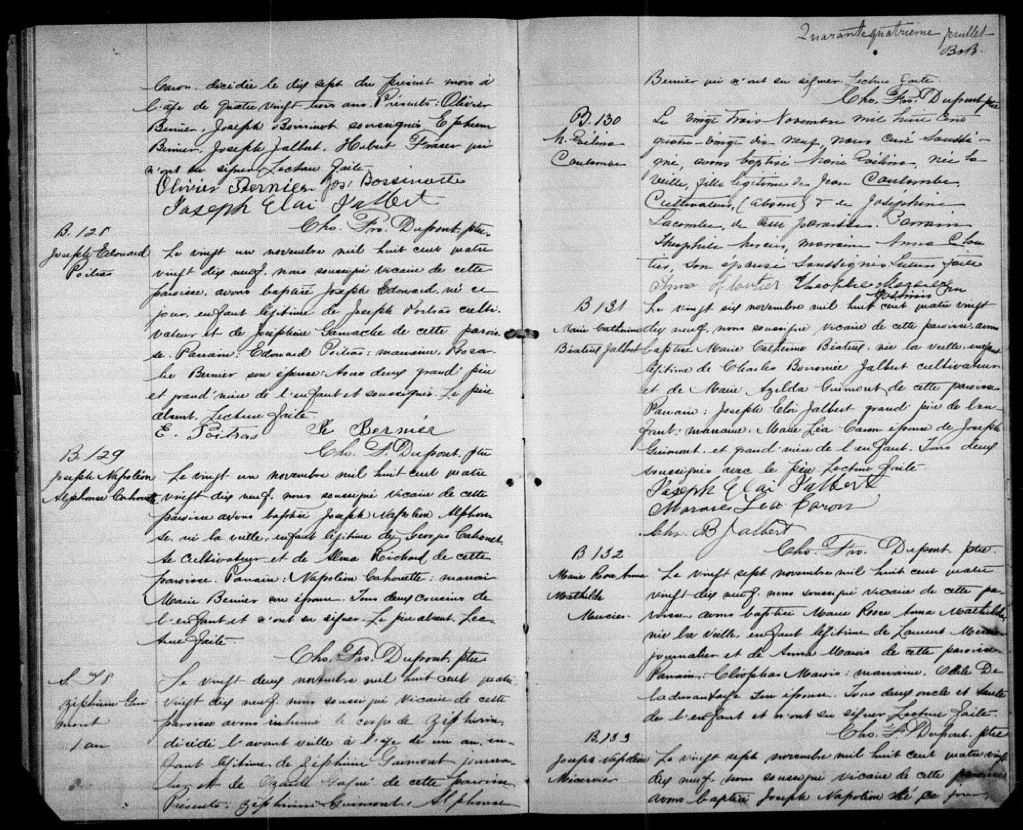 Caron, décédée le dix sept du présent mois à
l'age de quatre vingt trois ans. Présents: Olivier
Bernier, Joseph soussignés, Ephrem
Bernier, Joseph Jalbert, Hubert Fraser qui
n'ont su signer. Lecture faite
Olivier Bernier Jos Bossinotte
Joseph Elai Jalbert
Chs. Frs. Dupont, ptre
B. 128
Joseph Edouard
Poitras
Le vingt un novembre mil huit cent quatre
vingt dix neuf, nous soussigné vicaire de cette
paroisse, avons baptisé Joseph Edouard, né ce
jour, enfant légitime de Joseph Poitras culti-
vateur et de Joséphine Gamache de cette parois-
se. Parrain: Edouard Poitras; marraine, Rosa-
lie Bernier son épouse. Tous deux grand' père
et grand' mère de l'enfant et soussignés. Le père
absent. Lecture faite
E. Poitras R. Bernier
Chs. F. Dupont, ptre
B. 129
Joseph Napoléon
Alphonse Cahouette
Le vingt un novembre mil huit cent quatre
vingt dix neuf, nous soussigné vicaire de cette
paroisse avons baptisé Joseph Napoléon Alphon-
se, né la veille, enfant légitime de Georges Cahouet-
te cultivateur et de Alma Richard de cette
paroisse. Parrain: Napoléon Cahouette; marrai-
Marie Bernier son épouse. Tous deux cousins de
l'enfant et n'ont su signer. Le père absent. Lec-
ture faite.
Chs. Frs. Dupont, ptre
S. 78
Zéphirin Gui
mont
1 an
Le vingt deux novembre mil huit cent quatre
vingt dix neuf, nous soussigné vicaire de cette
paroisse avons inhumé le corps de Zéphirin,
décédé l'avant veille à l'age de un an, en-
fant légitime de Zéphirin Guimont journa-
lier et de de cette paroisse
Présents: Zéphirin Guimont, Alphonse
Quarante quatrième feuillet
B.B.
Bernier qui n'ont su signer Lecture faite.
Chs. Frs. Dupont ptre
B. 130
M. Exélina
Coulombe
Le vingt trois Novembre mil huit cent
quatre-vingt dix neuf, nous Curé soussi-
gné, avons baptisé Marie Exélina, née la
veille, fille légitime de Jean Coulombe
Cultivateur, (absent) & de Josephine
Lacombe, de cette paroisse. Parrain
Théophile Mercier, marraine Anna Clou-
tier, Son épouse Soussignés Lecture faite
Anna Cloutier Théophile Mercier
B 131
Marie Catherine
Béatrix Jalbert
Le vingt six novembre mil huit cent quatre vingt
dix neuf, nous soussigné vicaire de cette paroisse avons
baptisé Marie Catherine Béatrix, née la veille, enfant
légitime de Charles Boromée Jalbert cultivateur
et de Marie Azilda Guimont de cette paroisse
Parrain: Joseph Eloi Jalbert grand' père de l'en-
fant: marraine. Marie Léa Caron épouse de Joseph
Guimont, et grand'mère de l'enfant. Tous deux
soussignés avec le père Lecture faite.
Joseph Elai Jalbert
Marie Lea Caron
Chs. B Jalbert
Chs. Frs. Dupont ptre
B 132
Marie Rose Anna
Mathilde
Mercier
Le vingt sept novembre mil huit cent quatre
vingt dix neuf, nous soussigné vicaire de cette pa-
roisse avons baptisé Marie Rose Anna Mathilde,
née la veille, enfant légitime de Laurent Mercier
journalier et de Anna Marois de cette paroisse
Parrain: Cléophas Marois: marraine, Odile De
ladurantaye son épouse. Tous deux oncle et tante
de l'enfant et n'ont su signer Lecture faite.
Chs. F. Dupont, ptre
B. 133
Joseph Napoléon
Mercier
Le vingt sept novembre mil huit cent quatre vingt
dix neuf, nous soussigné vicaire de cette paroisse
avons baptisé Joseph Napoléon né ce jour,